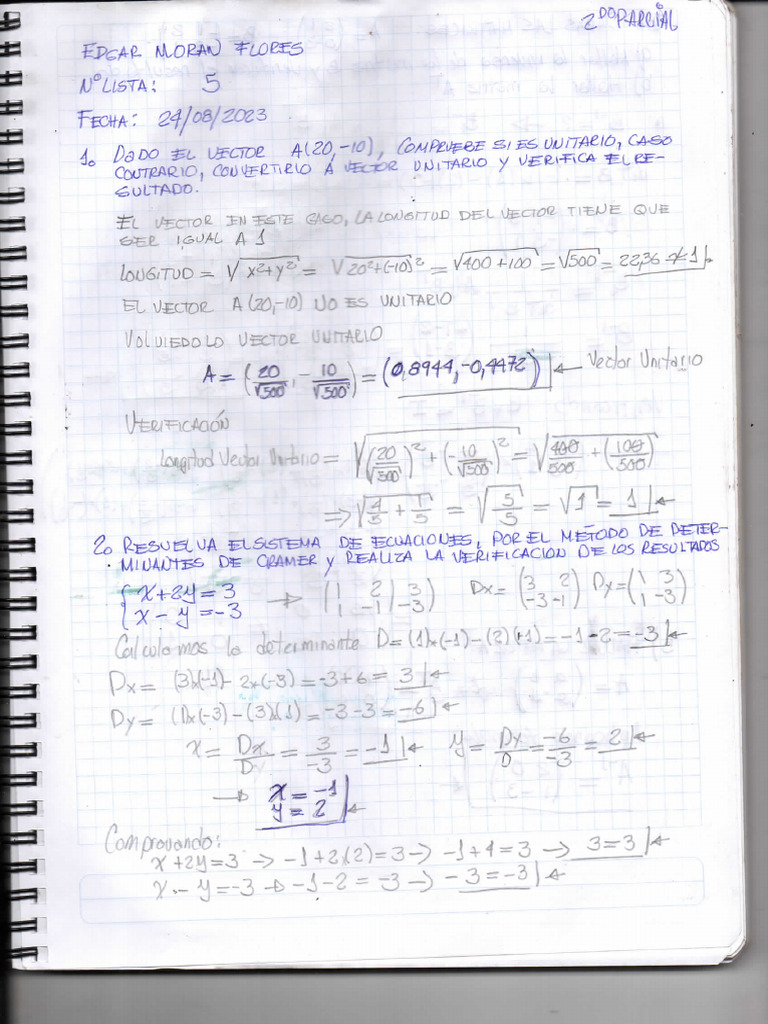 2DO PARCIAL
EDGAR MORAN FLORES
Nº LISTA: 5
FECHA: 24/08/2023
1. DADO EL VECTOR A(20,-10), COMPRUEBE SI ES UNITARIO, CASO
CONTRARIO, CONVERTIRLO A VECTOR UNITARIO Y VERIFICA EL RE-
SULTADO.
EL VECTOR EN ESTE CASO, LA LONGITUD DEL VECTOR TIENE QUE
SER IGUAL A 1
LONGITUD = √(x²+y²) = √(20²+(-10)²) = √(400+100) = √500 = 22,36 ≠ 1
EL VECTOR A(20,-10) NO ES UNITARIO
VOLVIEDOLO VECTOR UNITARIO
A = (20/√500, -10/√500) = (0,8944,-0,4472) ← Vector Unitario
VERIFICACIÓN
Longitud Vector Unitario = √((20/√500)² + (-10/√500)²) = √(400/500 + (100/500))
⇒ √(4/5 + 1/5) = √(5/5) = √1 = 1 ←
2. RESUELVA EL SISTEMA DE ECUACIONES, POR EL MÉTODO DE DETER-
MINANTES DE CRAMER Y REALIZA LA VERIFICACION DE LOS RESULTADOS
{ x+2y=3 → (1 2 | 3) Dx= (3 2) Dy=(1 3)
{ x-y=-3 (1 -1 | -3) (-3 -1) (1 -3)
Calculamos la determinante D=(1)*(-1)-(2)(+1)=-1-2=-3 ←
Dx= (3)*(-1)-2*(-3)=-3+6= 3 ←
Dy= (1)x(-3)-(3)x(1)=-3-3=-6 ←
x= Dx/Dy = 3/-3 = -1 ← y= Dx/D = -6/-3 = 2 ←
→ x=-1
y=2 ←
Comprovando:
x+2y=3 → -1+2(2)=3 → -1+4=3 → 3=3 ←
x-y=-3 → -1-2=-3 → -3=-3 ←